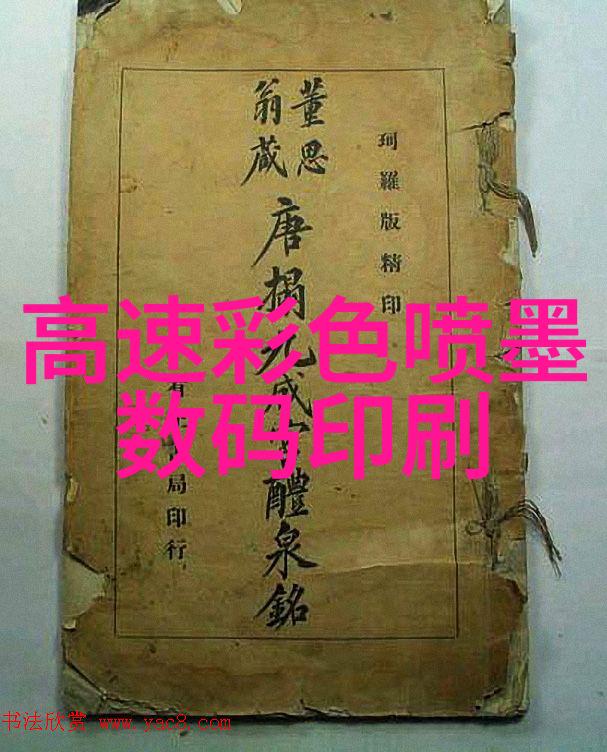 高速彩色喷墨
数码印刷
珂羅版精印
董思
翁藏
唐搨九成醴泉銘
有局印行
书法欣赏 www.yac8.com